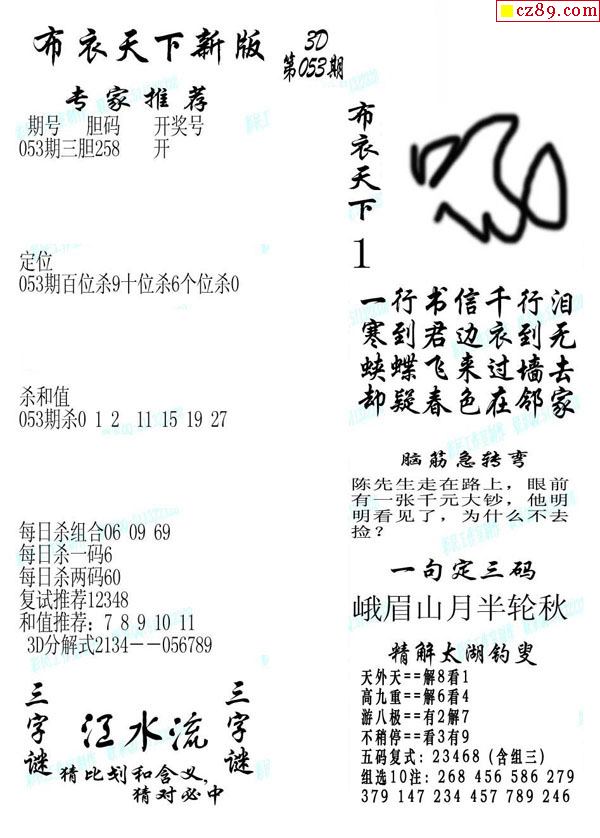 cz89.com
布衣天下新版
3D
第053期
专家推荐
期号 胆码 开奖号
053期三胆258 开
定位
053期百位杀9十位杀6个位杀0
杀和值
053期杀0 1 2 11 15 19 27
每日杀组合06 09 69
每日杀一码6
每日杀两码60
复试推荐12348
和值推荐：7 8 9 10 11
3D分解式2134--056789
三字谜
江水流
三字谜
猜比划和含义，
猜对必中
布衣天下
1
一行书信千行泪
寒到君边衣到无
蛱蝶飞来过墙去
却疑春色在邻家
脑筋急转弯
陈先生走在路上，眼前
有一张千元大钞，他明
明看见了，为什么不去
捡？
一句定三码
峨眉山月半轮秋
精解太湖钓叟
天外天==解8看1
高九重==解6看4
游八极==有2解7
不稍停==看3有9
五码复式：23468（含组三）
组选10注：268 456 586 279
379 147 234 457 789 246